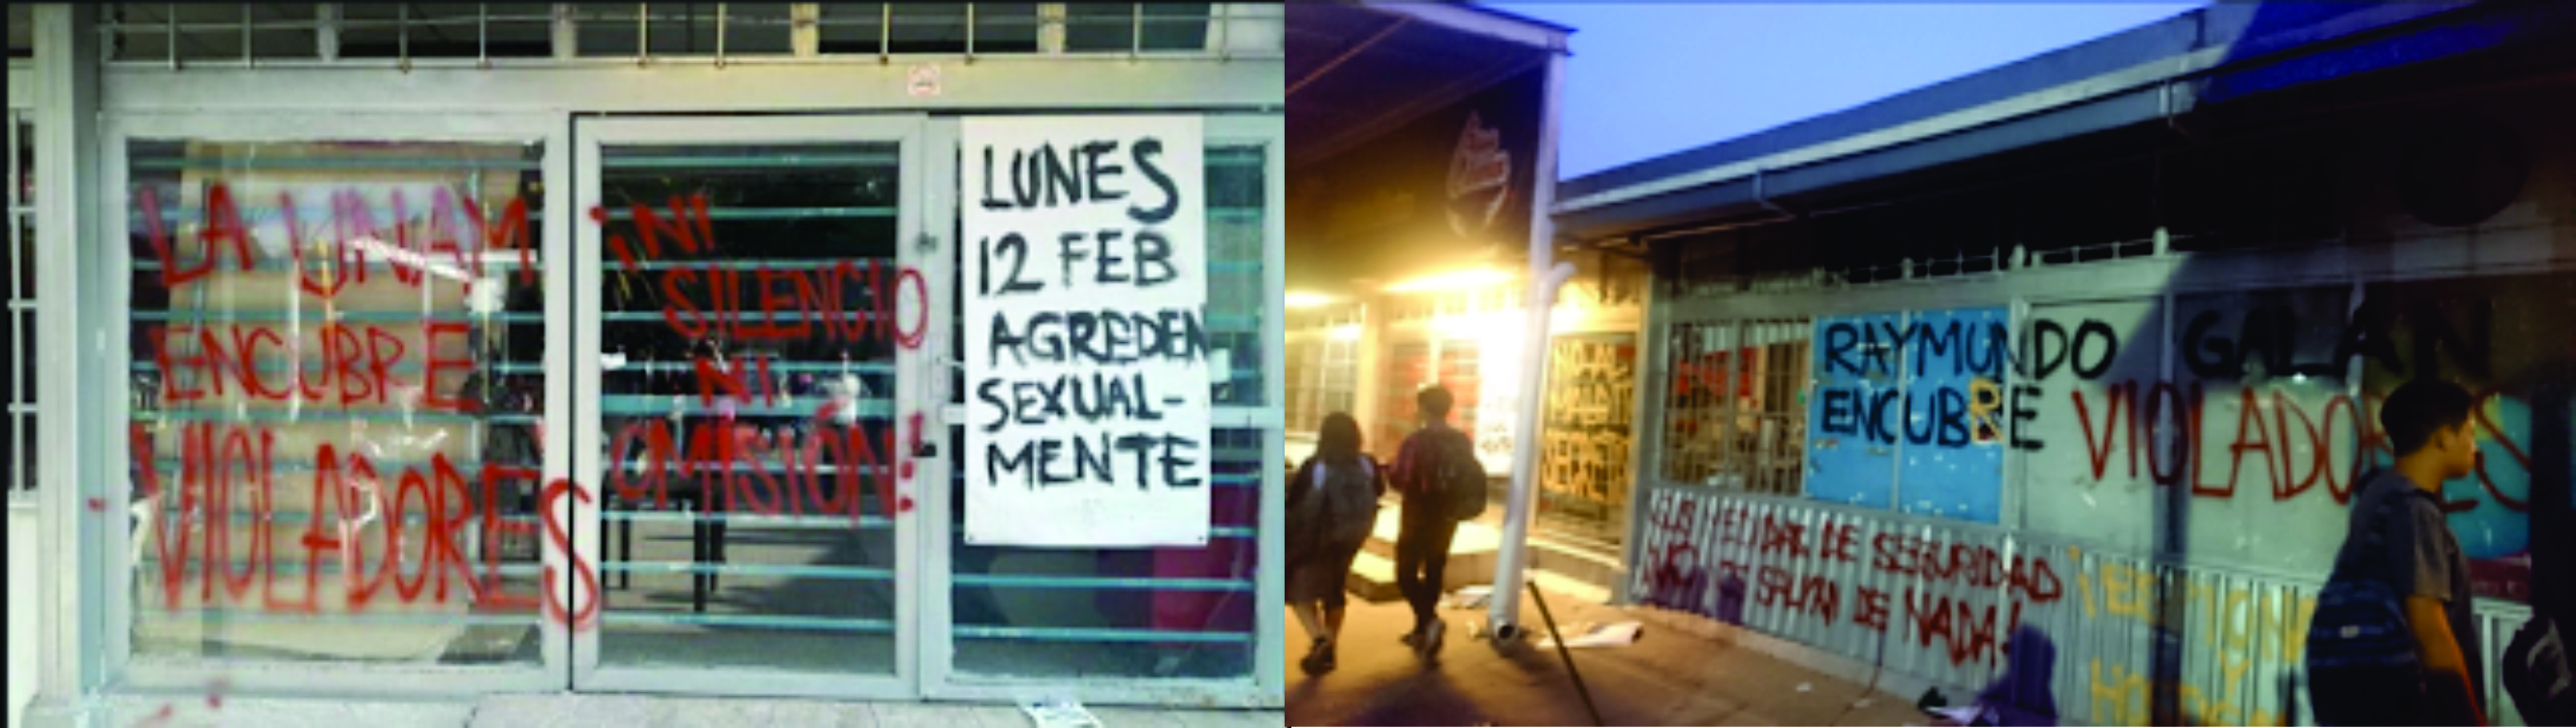 LA UNAM
ENCUBRE
VIOLADORES
¡NI
SILENCIO
NI
OMISIÓN!
LUNES
12 FEB
AGREDEN
SEXUAL-
MENTE
RAYMUNDO GALAN
ENCUBRE VIOLADORES
DE SEGURIDAD
SALVA DE NADA!